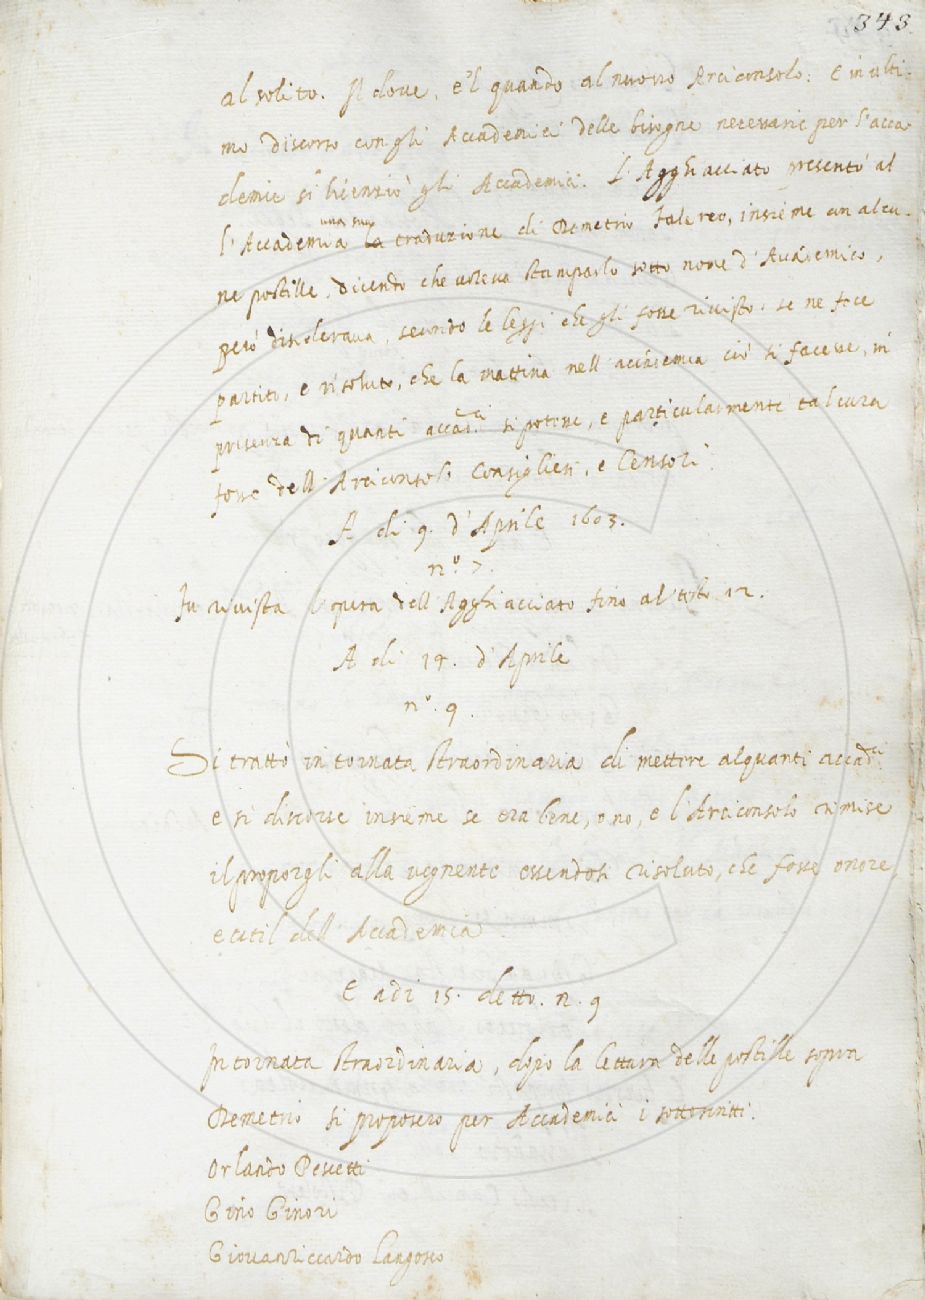 343
al solito. Il doue, e'l quando al nuouo Arciconsolo: E in ulti-
mo discorso con gli Accademici delle bisogne necessarie per l'acca
demie si licenziò gli Accademici. L'Agghiacciato presentò al
l'Accademia una sua la traduzione di Demetrio Falereo, insieme con alcu-
ne postille, dicendo che uoleua stamparlo sotto nome d'Accademico,
però desideraua, secondo le leggi che gli fosse riuisto. se ne fece
partito, e risoluto, che la mattina nell'accademia ciò si facesse, in
presenza di quanti accad.ci si potesse, e particularmente tal cura
fosse dell'Arciconsolo Consiglieri, e Censori.
A di 9. d'Aprile 1603.
n.º 7.
Fu riuista l'opera dell'Agghiacciato fino al testo 12.
A di 14. d'Aprile
n.º 9.
Si trattò in tornata straordinaria di mettere alquanti accad.ci
e si discorse insieme se era bene, o no, e l'Arciconsolo rimise
il proporgli alla uegnente essendosi risoluto, che fosse onore,
e util dell'Accademia.
E adi 15. detto. n. 9
In tornata straordinaria, dopo la lettura delle postille sopra
Demetrio si proposero per Accademici i sottoscritti.
Orlando Pescetti
Gino Ginori
Giouanriccardo Langosco